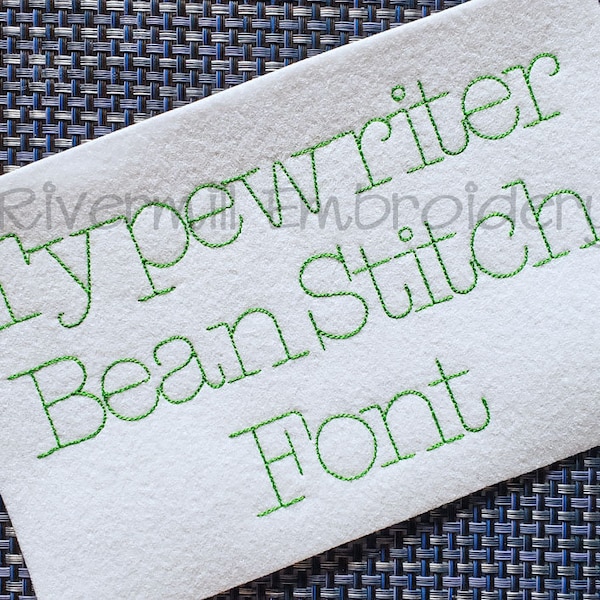 Typewriter
Rivermill Embroidery
Bean Stitch
Font